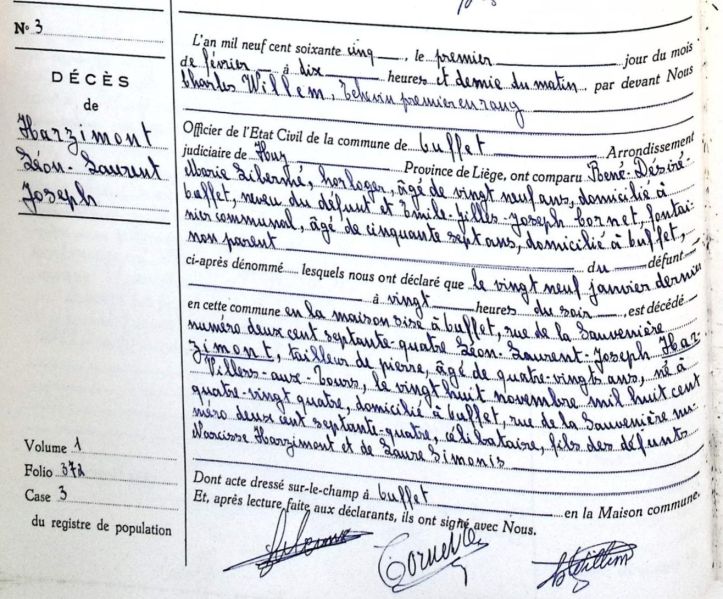 N° 3
DÉCÈS
de
Harzimont
Léon-Laurent
Joseph
Volume 1
Folio 372
Case 3
du registre de population
L'an mil neuf cent soixante cinq, le premier jour du mois
de février à dix heures et demie du matin par devant Nous
Charles Willem, Echevin premier en rang
Officier de l'Etat Civil de la commune de Ouffet Arrondissement
judiciaire de Huy Province de Liège, ont comparu René-Désiré-
Marie Libermé, horloger, âgé de vingt neuf ans, domicilié à
Ouffet, neveu du défunt et Emile-Gilles-Joseph Cornet, fontai-
nier communal, âgé de cinquante sept ans, domicilié à Ouffet,
non parent du défunt
ci-après dénommé lesquels nous ont déclaré que le vingt neuf janvier dernier
à vingt heures du soir, est décédé
en cette commune en la maison sise à Ouffet, rue de la Sauvenière
numéro deux cent septante-quatre Léon-Laurent-Joseph Har-
zimont, tailleur de pierre, âgé de quatre-vingts ans, né à
Villers-aux-Tours, le vingt huit novembre mil huit cent
quatre-vingt quatre, domicilié à Ouffet, rue de la Sauvenière nu-
méro deux cent septante-quatre, célibataire, fils des défunts
Narcisse Harzimont et de Laure Simonis
Dont acte dressé sur-le-champ à Ouffet en la Maison commune.
Et, après lecture faite aux déclarants, ils ont signé avec Nous.